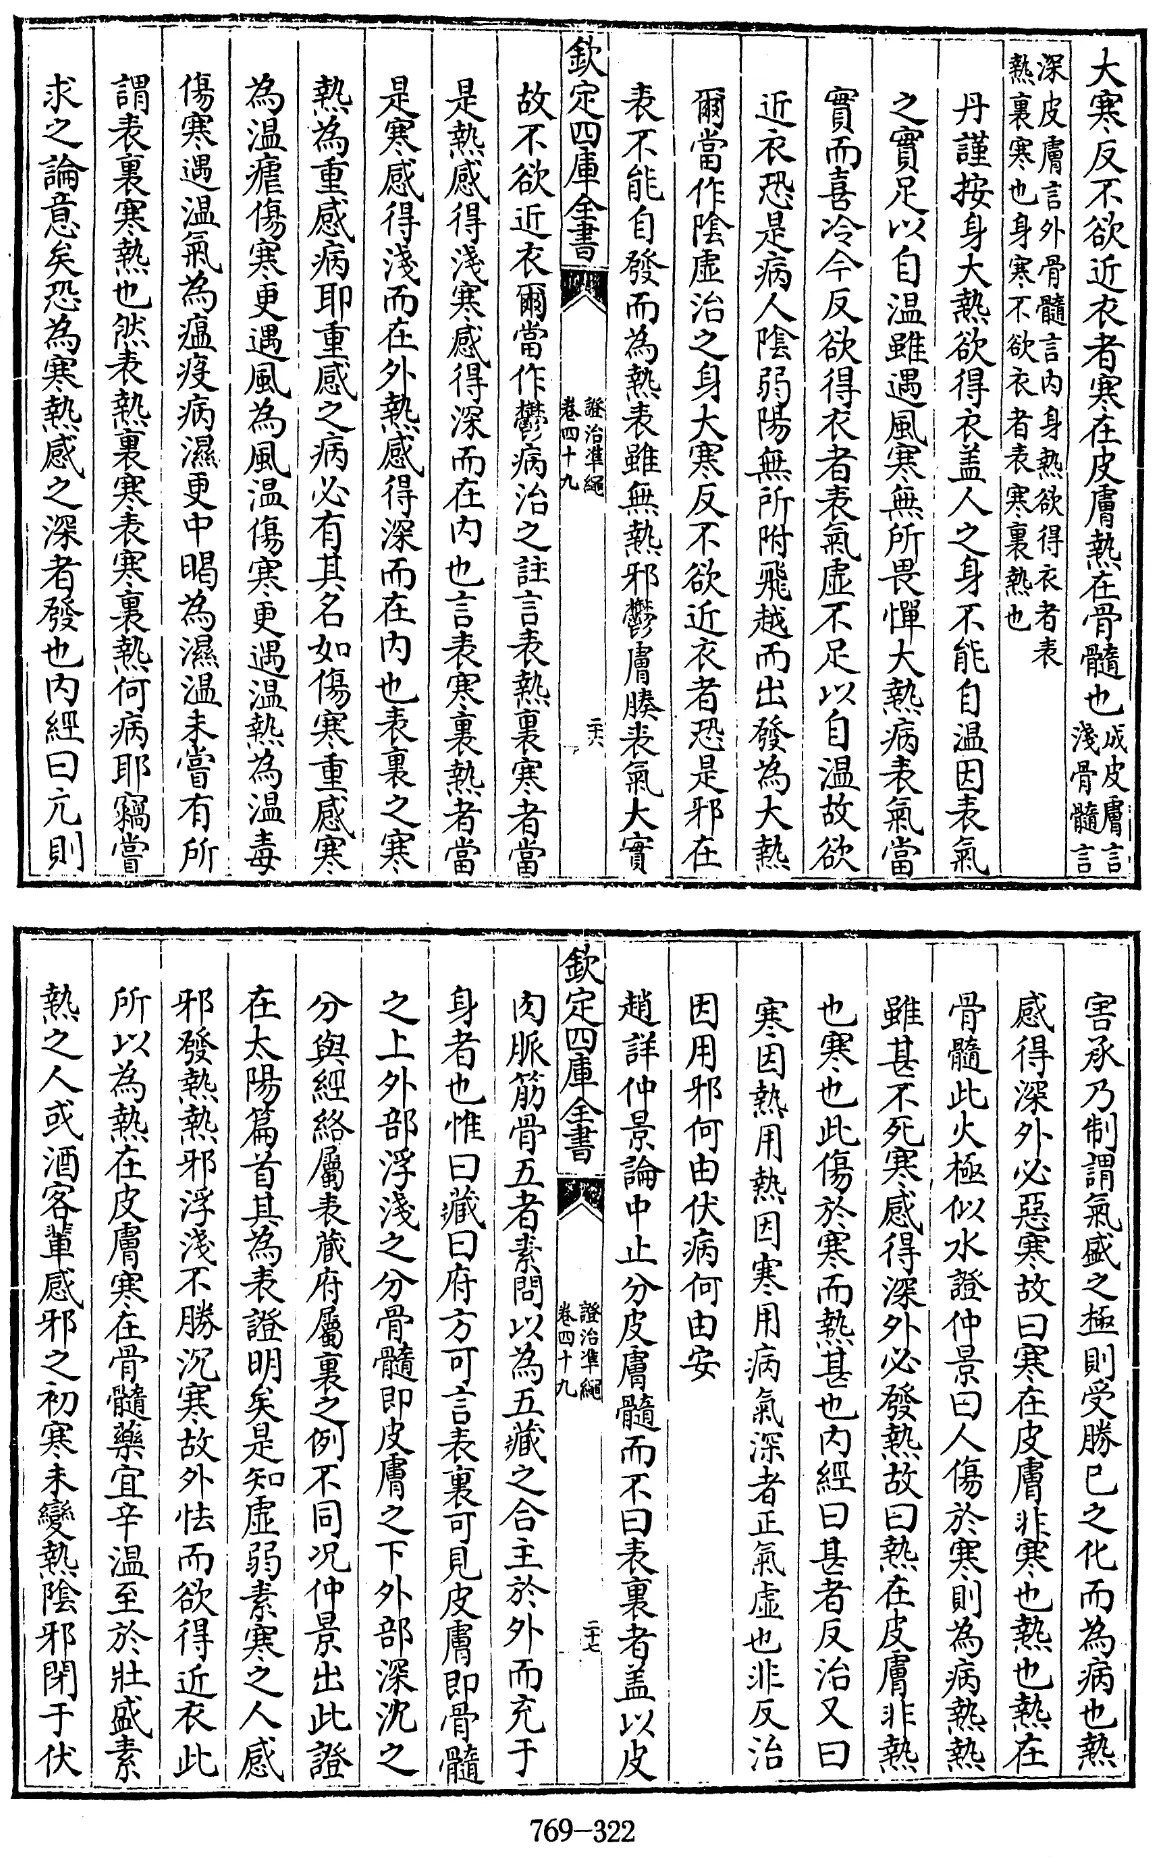 大寒反不欲近衣者寒在皮膚熱在骨髓也成皮膚言淺骨髓言
深皮膚言外骨髓言内身熱欲得衣者表
熱裏寒也身寒不欲衣者表寒裏熱也
丹謹按身大熱欲得衣盖人之身不能自温因表氣
之實足以自温雖遇風寒無所畏憚大熱病表氣當
實而喜冷今反欲得衣者表氣虛不足以自温故欲
近衣恐是病人陰弱陽無所附飛越而出發為大熱
爾當作陰虛治之身大寒反不欲近衣者恐是邪在
表不能自發而為熱表雖無熱邪鬱膚腠表氣大實
欽定四庫全書
證治準繩
卷四十九
二十六
故不欲近衣爾當作鬱病治之註言表熱裏寒者當
是熱感得淺寒感得深而在内也言表寒裏熱者當
是寒感得淺而在外熱感得深而在内也表裏之寒
熱為重感病耶重感之病必有其名如傷寒重感寒
為温瘧傷寒更遇風為風温傷寒更遇温熱為温毒
傷寒遇温氣為瘟疫病濕更中暍為濕温未嘗有所
謂表裏寒熱也然表熱裏寒表寒裏熱何病耶竊嘗
求之論意矣恐為寒熱感之深者發也内經曰亢則
害承乃制謂氣盛之極則受勝已之化而為病也熱
感得深外必惡寒故曰寒在皮膚非寒也熱也熱在
骨髓此火極似水證仲景曰人傷於寒則為病熱熱
雖甚不死寒感得深外必發熱故曰熱在皮膚非熱
也寒也此傷於寒而熱甚也内經曰甚者反治又曰
寒因熱用熱因寒用病氣深者正氣虛也非反治
因用邪何由伏病何由安
趙詳仲景論中止分皮膚髓而不曰表裏者盖以皮
欽定四庫全書
證治準繩
卷四十九
二十七
肉脈筋骨五者素問以為五藏之合主於外而充于
身者也惟曰藏曰府方可言表裏可見皮膚即骨髓
之上外部浮淺之分骨髓即皮膚之下外部深沈之
分與經絡屬表藏府屬裏之例不同况仲景出此證
在太陽篇首其為表證明矣是知虛弱素寒之人感
邪發熱熱邪浮淺不勝沉寒故外怯而欲得近衣此
所以為熱在皮膚寒在骨髓藥宜辛温至於壯盛素
熱之人或酒客輩感邪之初寒未變熱陰邪閉于伏
769-322